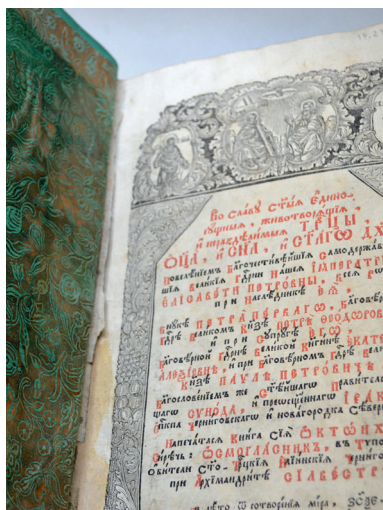 Во славу ст҃ыѧ єдино-
сꙋщныѧ, животворѧщїѧ,
и нераздѣлимыѧ ТРЦЫ,
ОЦА, и СНА, и СТАГѠ ДХ
повелѣнїемъ Благочестивѣйшїѧ самодержа
шїѧ великїѧ Гдрни нашеѧ ІМПЕРАТР
ЕЛІСАВЕТЫ ПЕТРОВНЫ, всеѧ ро
при наслѣдникѣ єѧ,
внꙋкѣ ПЕТРА ПЕРВАГѠ, Благовѣр
Гдрѣ Великомъ Кнзѣ ПЕТРѢ ѲЕОДѠРОВ
и при Сꙋпрꙋгѣ ЕГѠ,
Благовѣрной Гдрнѣ Великой Кнгинѣ ЕКАТЕ
АЛЕѮІЕВНѢ, и при Благовѣрномъ Гдрѣ Велик
Кнзѣ ПАУЛѢ ПЕТРОВИЧѢ
Благословенїемъ же Ст҃ѣйшагѡ правител
шагѡ СѴНОДА, и преѡсщеннагѡ ІРАК
Єпкпа Черниговскагѡ и новагородка сѣвер
Напечатасѧ Книга сїѧ ѠКТѠИХ
сирѣчь: ѠСМОГЛАСНИКЪ, въ Тѵпо
Обители Сто-Трцкїѧ Илїинскїѧ Черниго
при Архїмандритѣ СІЛВЕСТР
лѣто ѿ сотворенїѧ мїра,